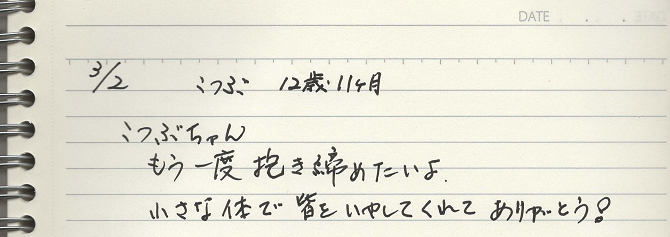 DATE . . .
3/2 こつぶ 12歳・11ヶ月
こつぶちゃん
もう一度 抱き締めたいよ.
小さな体で 皆をいやしてくれて ありがとう!